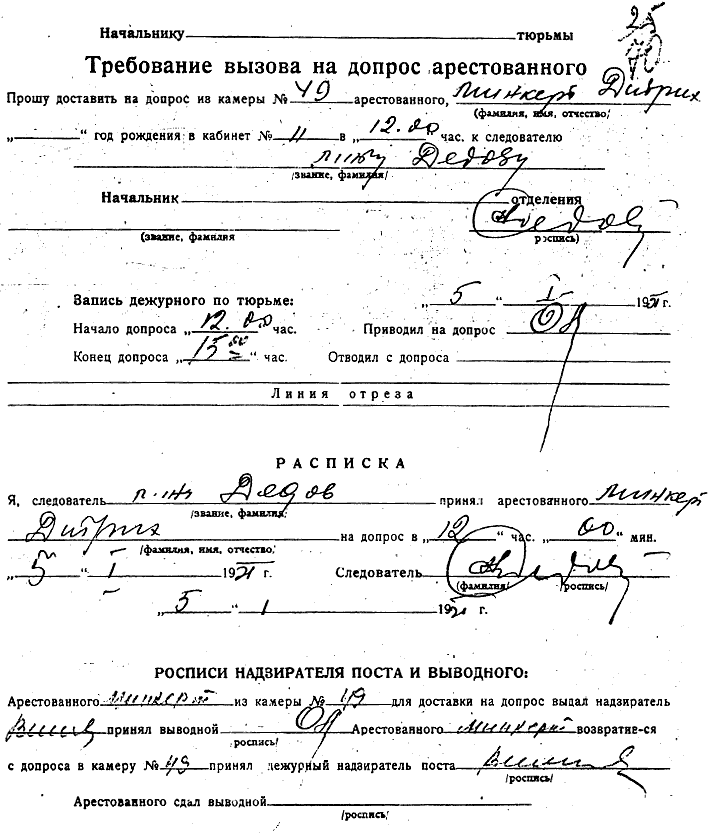 25
Начальнику тюрьмы
Требование вызова на допрос арестованного
Прошу доставить на допрос из камеры № 49 арестованного, Минкерт Дитрих
(фамилия, имя, отчество/
„ “ год рождения в кабинет № 11 в „ 12.00 час. к следователю
л-ту Дедову
/звание, фамилия/
Начальник отделения
(звание, фамилия роспись)
Запись дежурного по тюрьме: „ 5 “ I 1951 г.
Начало допроса „ 12.00 „ час. Приводил на допрос
Конец допроса „ 15 00 “ час. Отводил с допроса
Линия отреза
РАСПИСКА
Я, следователь л-нт Дедов принял арестованного Минкерт
/звание, фамилия/
Дитрих на допрос в „ 12 “ час. „ 00 “ мин.
/фамилия, имя, отчество/
„ 5 “ I 1951 г. Следователь
(фамилия/ /роспись/
„ 5 “ 1 1951 г.
РОСПИСИ НАДЗИРАТЕЛЯ ПОСТА И ВЫВОДНОГО:
Арестованного Минкерт из камеры № 49 для доставки на допрос выдал надзиратель
принял выводной Арестованного Минкерт возвратив-ся
роспись/
с допроса в камеру № 49 принял дежурный надзиратель поста
/роспись/
Арестованного сдал выводной
/роспись/